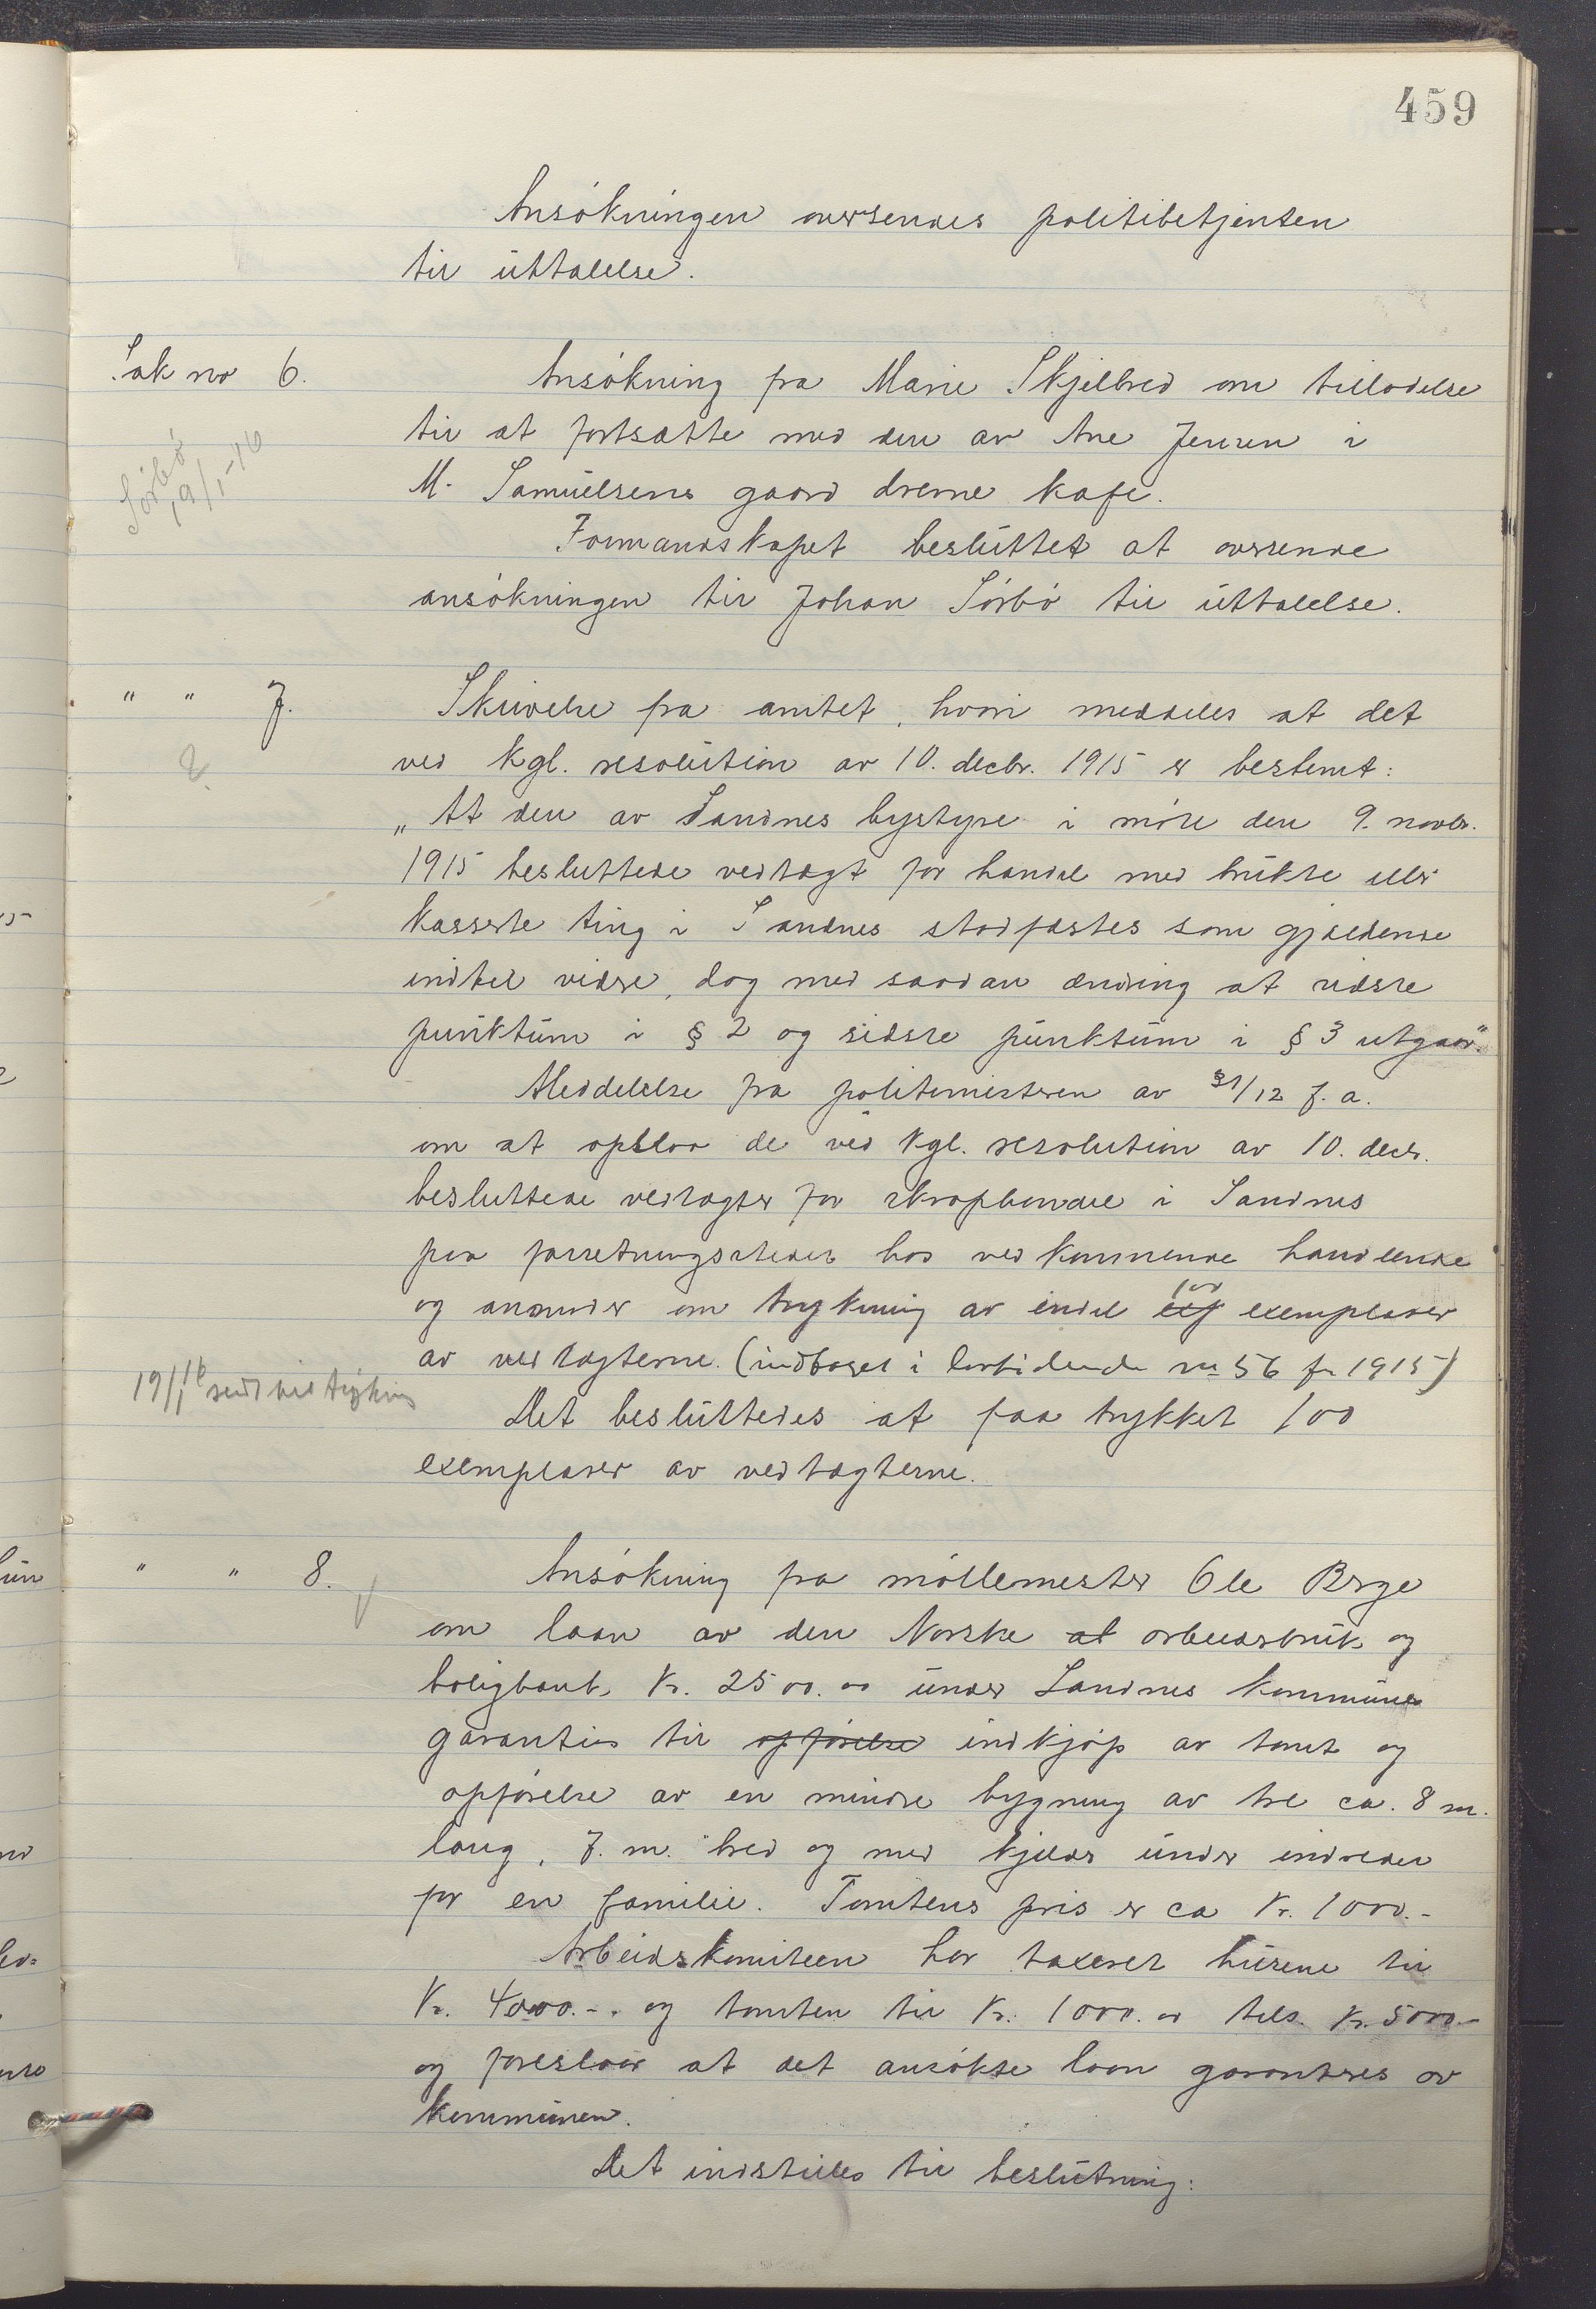 459
Ansökningen oversendes politibetjenten
til uttalelse.
Sak no 6. Ansökning fra Marie Skjelbred om tilladelse
til at fortsætte med den av Ane Jensen i
Sörbö 19/1-16
M. Samuelsens gaard drevne kafe.
Formandskapet besluttet at oversende
ansökningen til Johan Sörbö til uttalelse.
" " 7. Skrivelse fra amtet, hvori meddeles at det
ved kgl. resolution av 10. decbr. 1915 er bestemt:
„At den av Sandnes bystyre i möte den 9. novbr.
1915 besluttede vedtægt for handel med brukte eller
kasserte ting i Sandnes stadfæstes som gjældende
indtil videre, dog med saadan ændring at sidste
punktum i § 2 og sidste punktum i § 3 utgaar."
Meddelelse fra politimesteren av 31/12 f. a.
om at opslaa de ved kgl. resolution av 10. decbr.
besluttede vedtægter for skraphandel i Sandnes
paa forretningsstedet hos vedkommende handlende
og anmoder om trykning av endel 100 exemplarer
av vedtægterne. (indtaget i lovtidende nr 56 for 1915)
19/1 16 sendt til trykning
Det besluttedes at faa trykket 100
exemplarer av vedtægterne.
" " 8. Ansökning fra möllemester Ole Berge
om laan av den Norske at arbeidsbruk og
boligbank kr. 2500.00 under Sandnes kommunes
garantie til opförelse indkjöp av tomt og
opförelse av en mindre bygning av tre ca. 8 m.
lang, 7. m. bred og med kjelder under indredet
for en familie. Tomtens pris er ca kr. 1000.-
Arbeidskomiteen har taxeret husene til
kr. 4000.-. og tomten til kr. 1000.00 tils. kr. 5000.-
og foreslaar at det ansökte laan garanteres av
kommunen.
Det indstilles til beslutning: